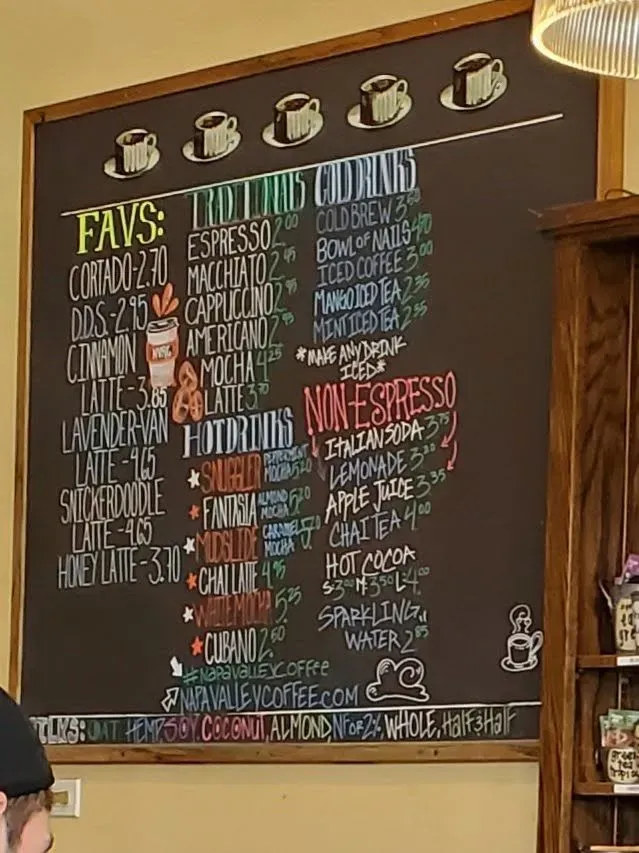 FAVS:
CORTADO-2.70
D.D.S.-2.95
CINNAMON
LATTE-3.85
LAVENDER-VAN
LATTE-4.65
SNICKERDOODLE
LATTE-4.65
HONEY LATTE-3.70
TRADITIONALS
ESPRESSO 2.00
MACCHIATO 2.45
CAPPUCCINO 2.95
AMERICANO
MOCHA 4.25
LATTE 3.70
HOT DRINKS
SNUGGLER PEPPERMINT MOCHA 5.20
FANTASIA ALMOND MOCHA 5.20
MUDSLIDE CARAMEL MOCHA 5.20
CHAI LATTE 4.95
WHITE MOCHA 5.25
CUBANO 2.60
#NAPAVALLEYCOFFEE
NAPAVALLEYCOFFEE.COM
COLD DRINKS
COLD BREW 3.50
BOWL OF NAILS
ICED COFFEE 3.00
MANGO ICED TEA
MINT ICED TEA 2.55
*MAKE ANY DRINK
ICED*
NON-ESPRESSO
ITALIAN SODA 3.75
LEMONADE
APPLE JUICE 3.35
CHAI TEA 4.00
HOT COCOA
S-3.00 M-3.50 L-4.00
SPARKLING
WATER 2.85
MILKS: OAT, HEMP, SOY, COCONUT, ALMOND, NF OR 2%, WHOLE, HALF & HALF